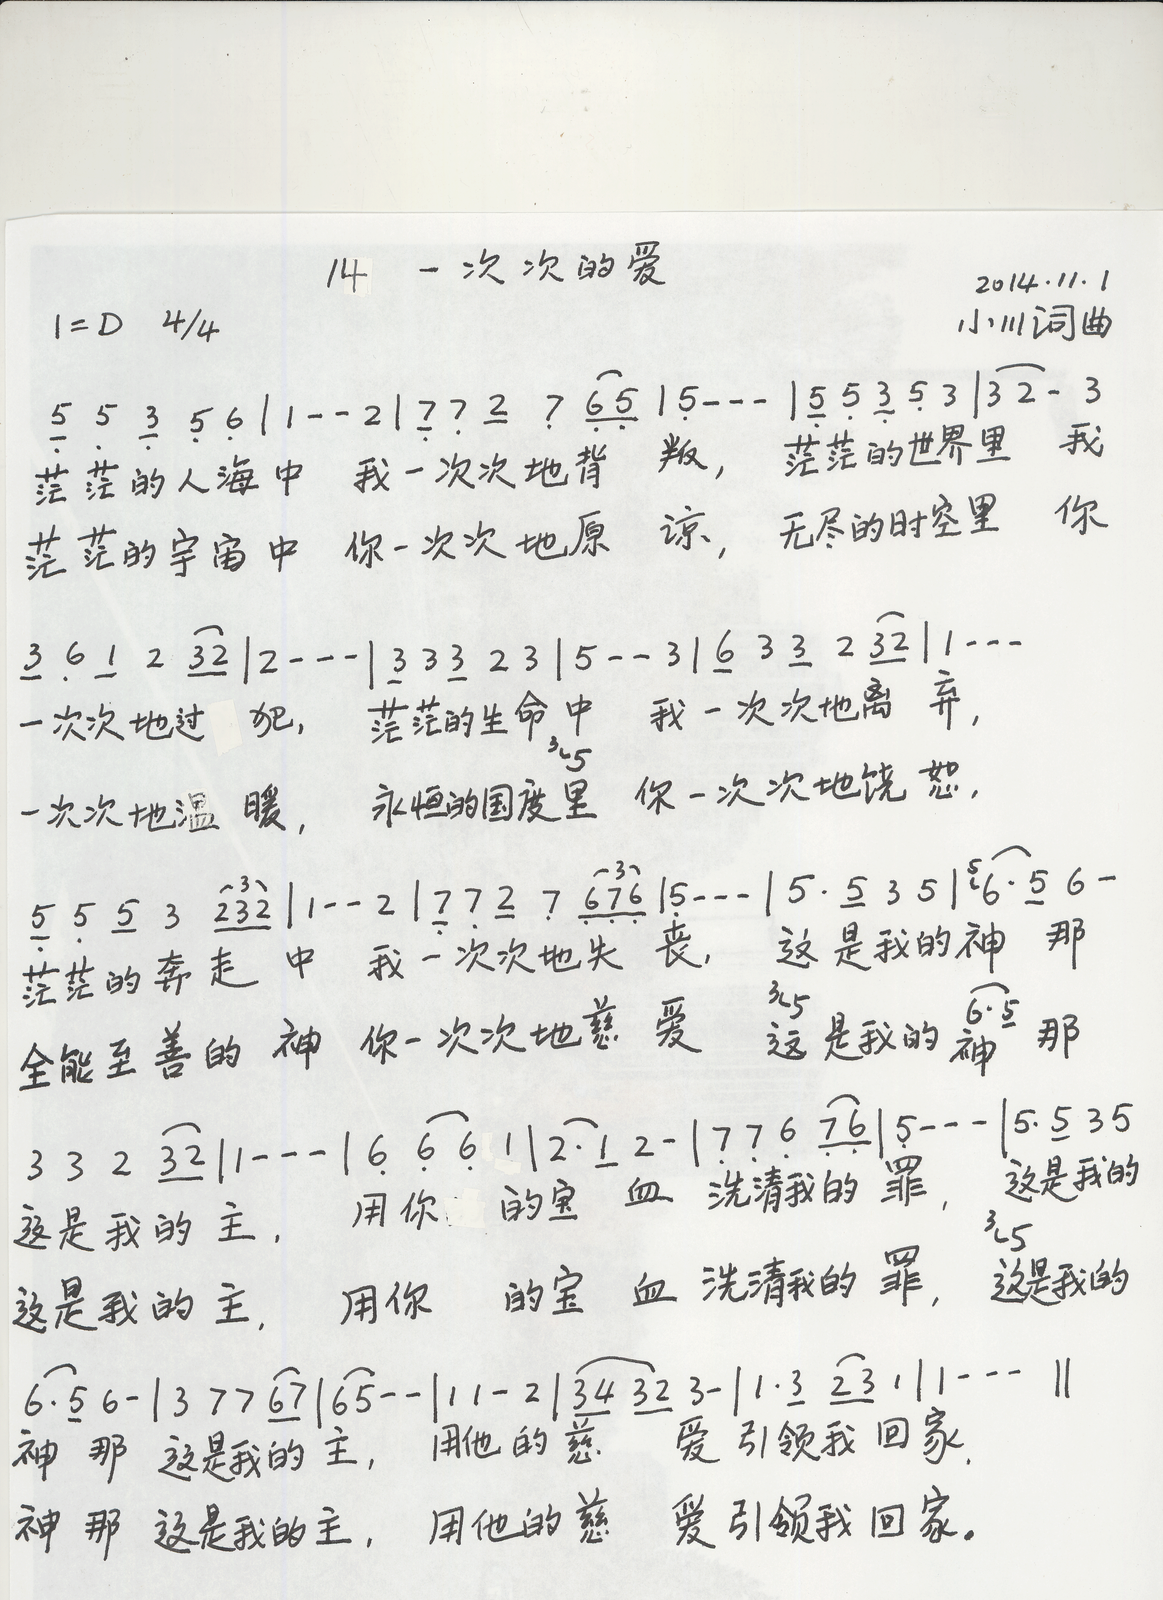 14 一次次的爱
2014.11.1
1=D 4/4 小川词曲
5 5 3 5 6 | 1 - - 2 | 7 7 2 7 6 5 | 5 - - - | 5 5 3 5 3 | 3 2 - 3
茫茫的人海中 我一次次地背 叛, 茫茫的世界里 我
茫茫的宇宙中 你一次次地原 谅, 无尽的时空里 你
3 6 1 2 3 2 | 2 - - - | 3 3 3 2 3 | 5 - - 3 | 6 3 3 2 3 2 | 1 - - -
一次次地过 犯, 茫茫的生命中 我一次次地离 弃,
3 5
一次次地温 暖, 永恒的国度里 你一次次地饶 恕,
5 5 5 3 2 3 2 | 1 - - 2 | 7 7 2 7 6 7 6 | 5 - - - | 5 · 5 3 5 | 5 6 · 5 6 -
3 3
茫茫的奔走 中 我一次次地失 丧, 这是我的神 那
3 5 6 · 5
全能至善的 神 你一次次地慈 爱 这是我的神 那
3 3 2 3 2 | 1 - - - | 6 6 6 1 | 2 · 1 2 - | 7 7 6 7 6 | 5 - - - | 5 · 5 3 5
这是我的主, 用你 的宝 血 洗清我的 罪, 这是我的
3 5
这是我的主, 用你 的宝 血 洗清我的 罪, 这是我的
6 · 5 6 - | 3 7 7 6 7 | 6 5 - - | 1 1 - 2 | 3 4 3 2 3 - | 1 · 3 2 3 1 | 1 - - - ||
神 那 这是我的主, 用他的慈 爱引领我回家.
神 那 这是我的主, 用他的慈 爱引领我回家。